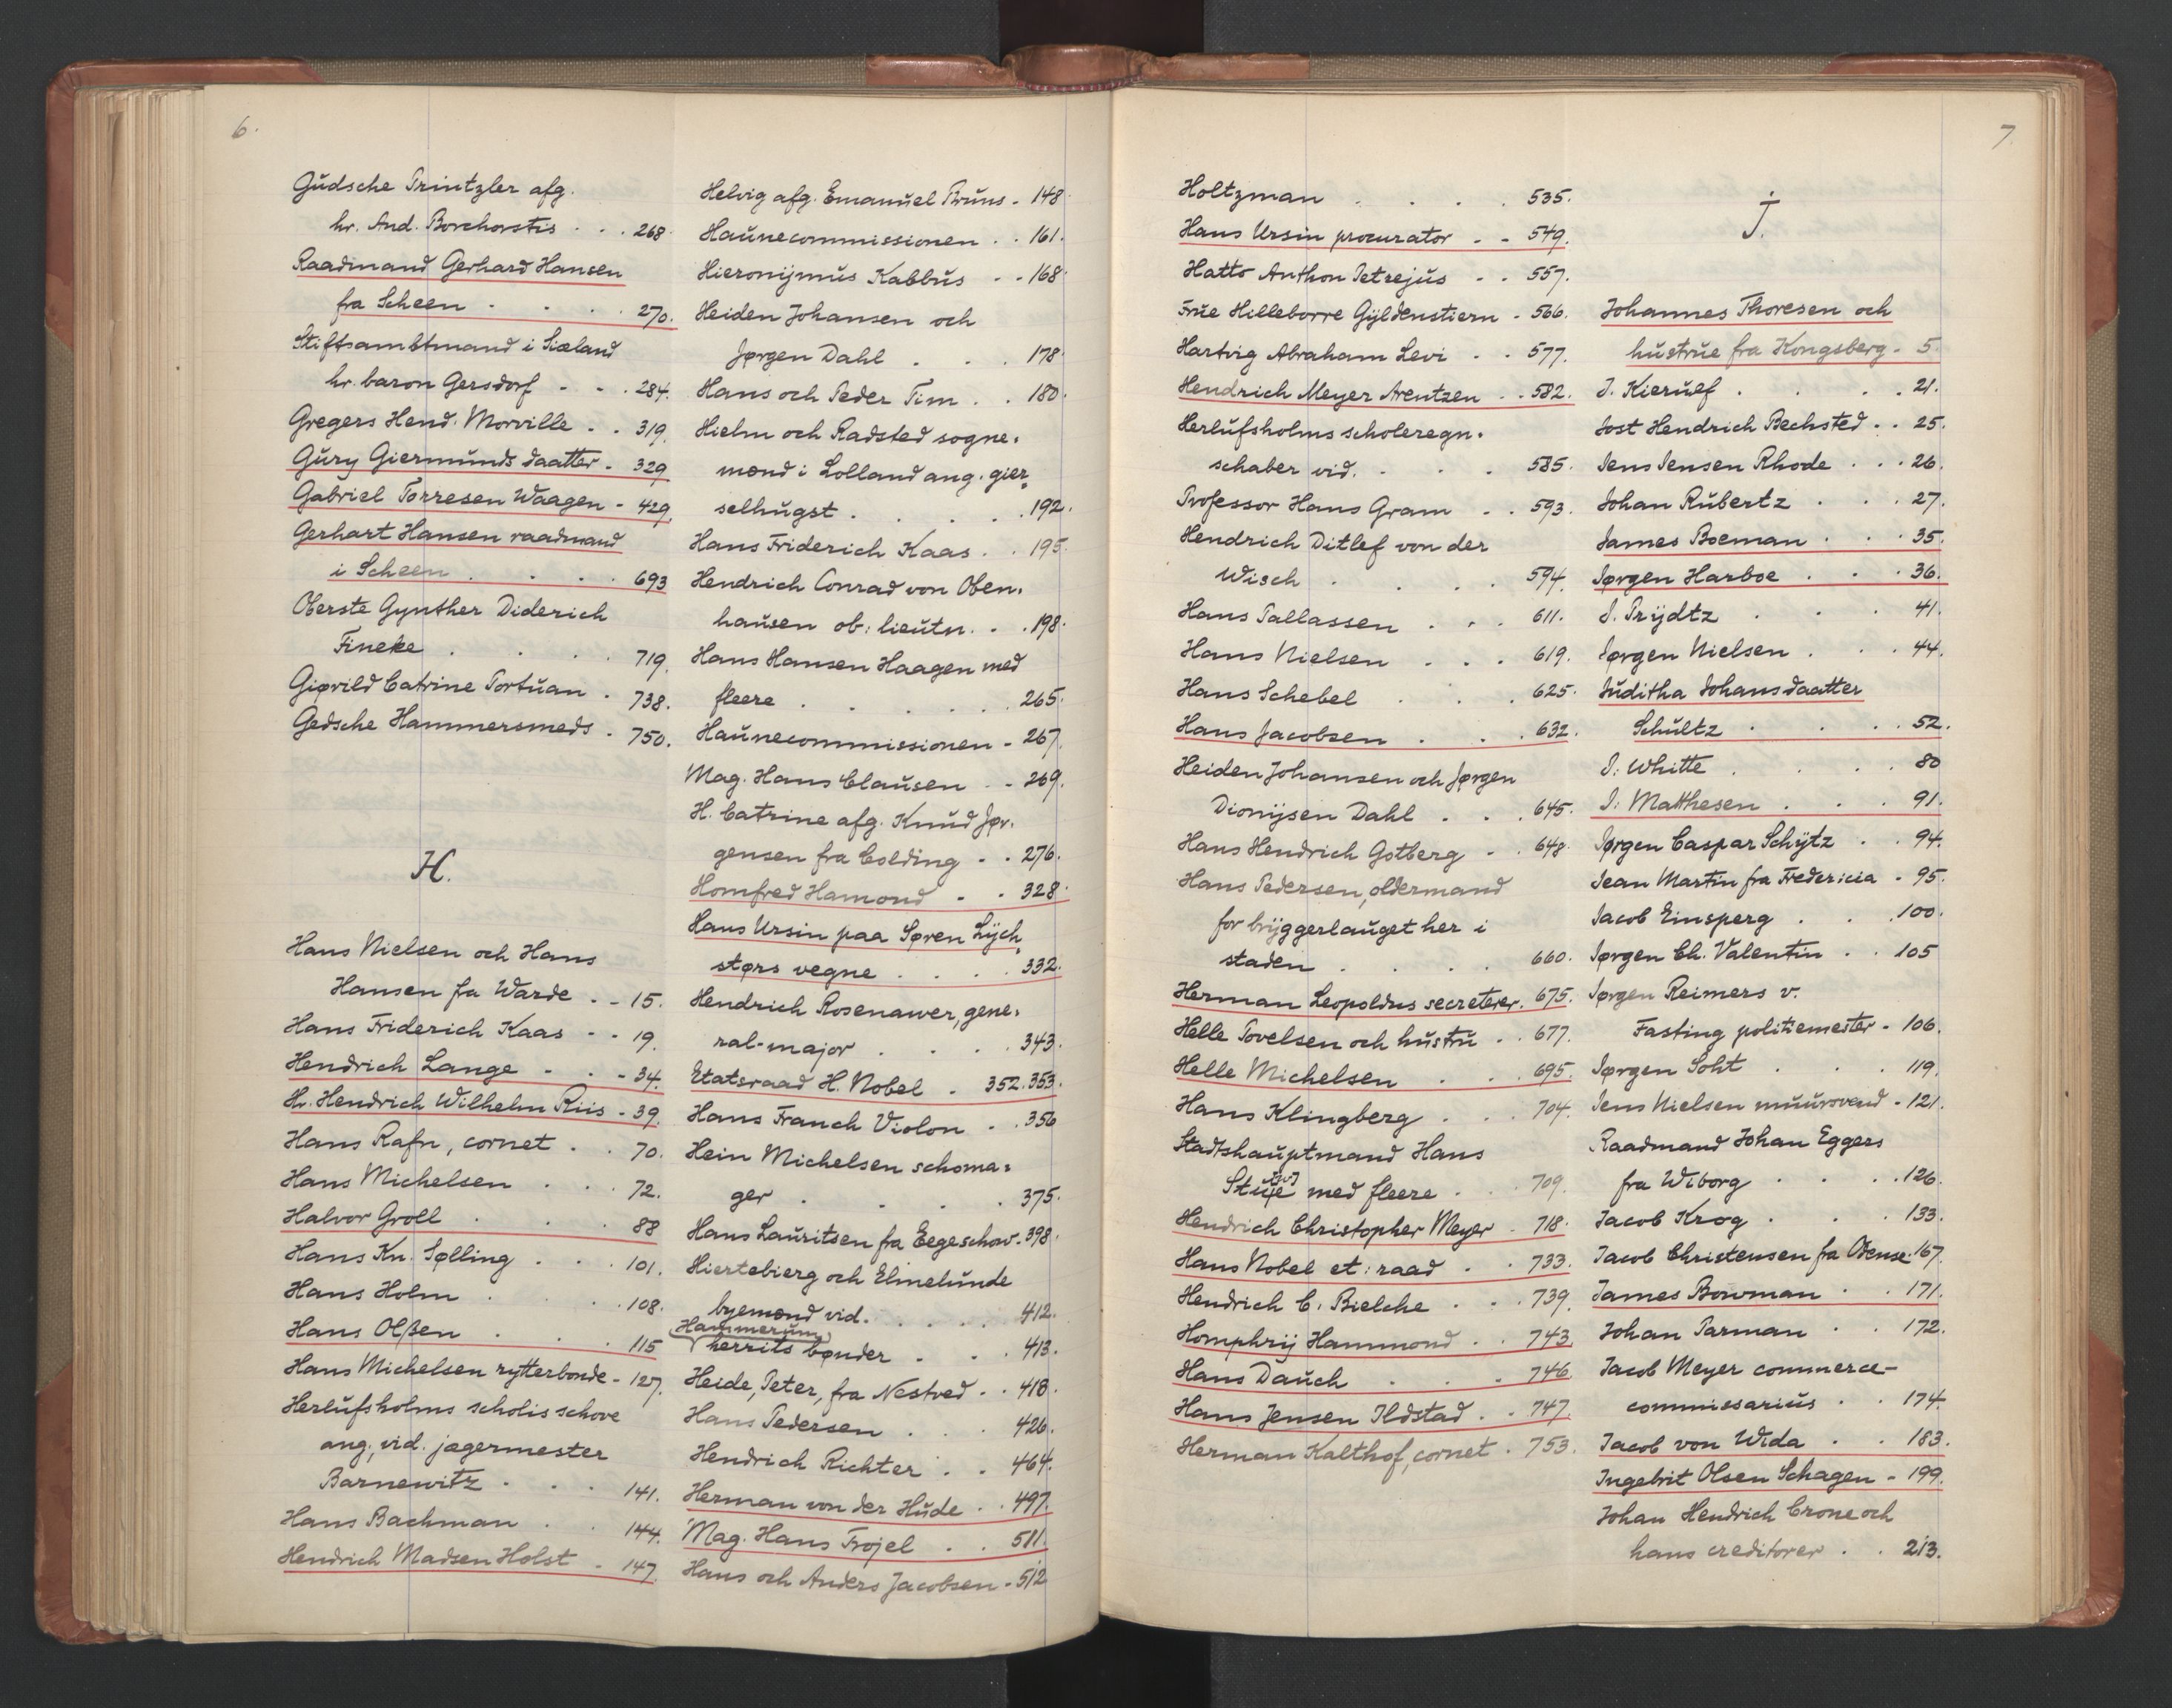 6.
Gudsche Printzler afg.
hr. And. Borchorstis . . . 268.
Raadmand Gerhard Hansen
fra Scheen - . . . 270.
Stiftsambtmand i Siæland
hr. baron Gersdorf - - . 284.
Gregers Hend. Morville . . 319.
Gury Giermunds daatter - 329
Gabriel Torresen Waagen - 429.
Gerhart Hansen raadmand
i Scheen . . . . 693
Oberste Gynther Diderich
Fineke . . . . 719.
Giørild Catrine Portuan . 738.
Gedsche Hammersmeds . 750.
H.
Hans Nielsen och Hans
Hansen fra Warde . - 15.
Hans Friderich Kaas - - 19.
Hendrich Lange - . - 34.
Hr. Hendrich Wilhelm Riis - 39.
Hans Rafn, cornet . . 70.
Hans Michelsen . . . 72.
Halvor Groll . . . 88
Hans Kn. Sølling . . . 101.
Hans Holm . . . 108.
Hans Olßen . . . 115
Hans Michelsen rytterbonde - 127.
Herlufsholms scholis schove
ang; vid. jægermester
Barnewitz . . . 141.
Hans Bachman . . 144.
Hendrich Madsen Holst - 147.
Helvig afg. Emanuel Bruns - 148.
Haunecommissionen . . 161.
Hieronijmus Kabbus - - 168.
Heiden Johansen och
Jørgen Dahl . . . 178.
Hans och Peder Tim . . 180.
Hielm och Radsted sogne-
mænd i Lolland ang. gier-
selhugst . . . . 192.
Hans Friderich Kaas . . 195.
Hendrich Conrad von Oben-
hausen ob: lieutn. . . 198.
Hans Hansen Haagen med
fleere . . . . . 265.
Haunecommissionen - 267.
Mag. Hans Clausen - - 269.
H. Catrine afg. Knud Jør-
gensen fra Colding - - 276.
Homfred Hamond - - 328.
Hans Ursin paa Søren Lych-
størs vegne . . . . 332.
Hendrich Rosenawer, gene-
ral-major . . . . 343.
Etatsraad H. Nobel . 352. 353.
Hans Franch Violon . . 356
Hein Michelsen schoma-
ger . . . . 375.
Hans Lauritsen fra Eegeschow - 398.
Hiertebierg och Elmelunde
byemænd vid. . . . . 412.
Hammerum
herrits bønder . . . 413.
Heide, Peter, fra Nestved . . 418.
Hans Pedersen . . . 426.
Hendrich Richter . . 464.
Herman von der Hude . . 497.
Mag. Hans Trojel . . 511.
Hans och Anders Jacobsen - 512
7.
Holtzman . . . . 535.
Hans Ursin procurator - - 549.
Hatto Anthon Petrejus - - 557.
Frue Hilleborre Gyldenstiern - 566.
Hartvig Abraham Levi . . 577.
Hendrich Meyer Arentzen . . 582.
Herlufsholms scholeregn-
schaber vid. . . . 585.
Professor Hans Gram . . 593.
Hendrich Ditlef von der
Wisch . . . . 594.
Hans Pallassen . . . 611.
Hans Nielsen . . . 619.
Hans Schebel . . . 625.
Hans Jacobsen . . . 632.
Heiden Johansen och Jørgen
Dionijsen Dahl . . . 645.
Hans Hendrich Gotberg - . 648.
Hans Pedersen, oldermand
for bryggerlauget her i
staden . . . . 660.
Herman Leopoldus secreterer. 675.
Helle Povelsen och hustru . . 677.
Helle Michelsen . . . 695.
Hans Klingberg . . . 704.
Stadtshauptmand Hans
Stuje med fleere . . . 709.
Hendrich Christopher Meyer - 718.
Hans Nobel et: raad . . 733.
Hendrich C. Bielche . . . 739.
Homphrij Hammond . . 743.
Hans Dauch . . . 746.
Hans Jensen Ildstad . . 747.
Herman Kalthof, cornet . 753.
J.
Johannes Thoresen och
hustrue fra Kongsberg - 5.
J. Kierulf . . . . 21.
Jost Hendrich Bechsted . . 25.
Jens Jensen Rhode . . . 26.
Johan Rubertz . . . 27.
James Boeman . . . 35.
Jørgen Harboe . . . 36.
J. Prijdtz . . . 41.
Jørgen Nielsen . . . 44.
Juditha Johansdaatter
Schultz . . . . 52.
J: Whitte . . . . 80
J: Matthesen . . . 91.
Jørgen Caspar Schijtz . . 94.
Jean Martin fra Fredericia - 95.
Jacob Einsperg . . . 100.
Jørgen Ch. Valentin . . 105
Jørgen Reimers v.
Fasting politiemester - 106.
Jørgen Soht . . . 119.
Jens Nielsen muursvend - 121.
Raadmand Johan Eggers
fra Wiborg . . . . 126.
Jacob Krog . . . 133.
Jacob Christensen fra Odense. 167.
James Bowman . . 171.
Johan Parman . . 172.
Jacob Meyer commerce-
commissarius . . 174.
Jacob von Wida . . 183.
Ingebrit Olsen Schagen - 199.
Johan Hendrich Crone och
hans creditorer . . 213.